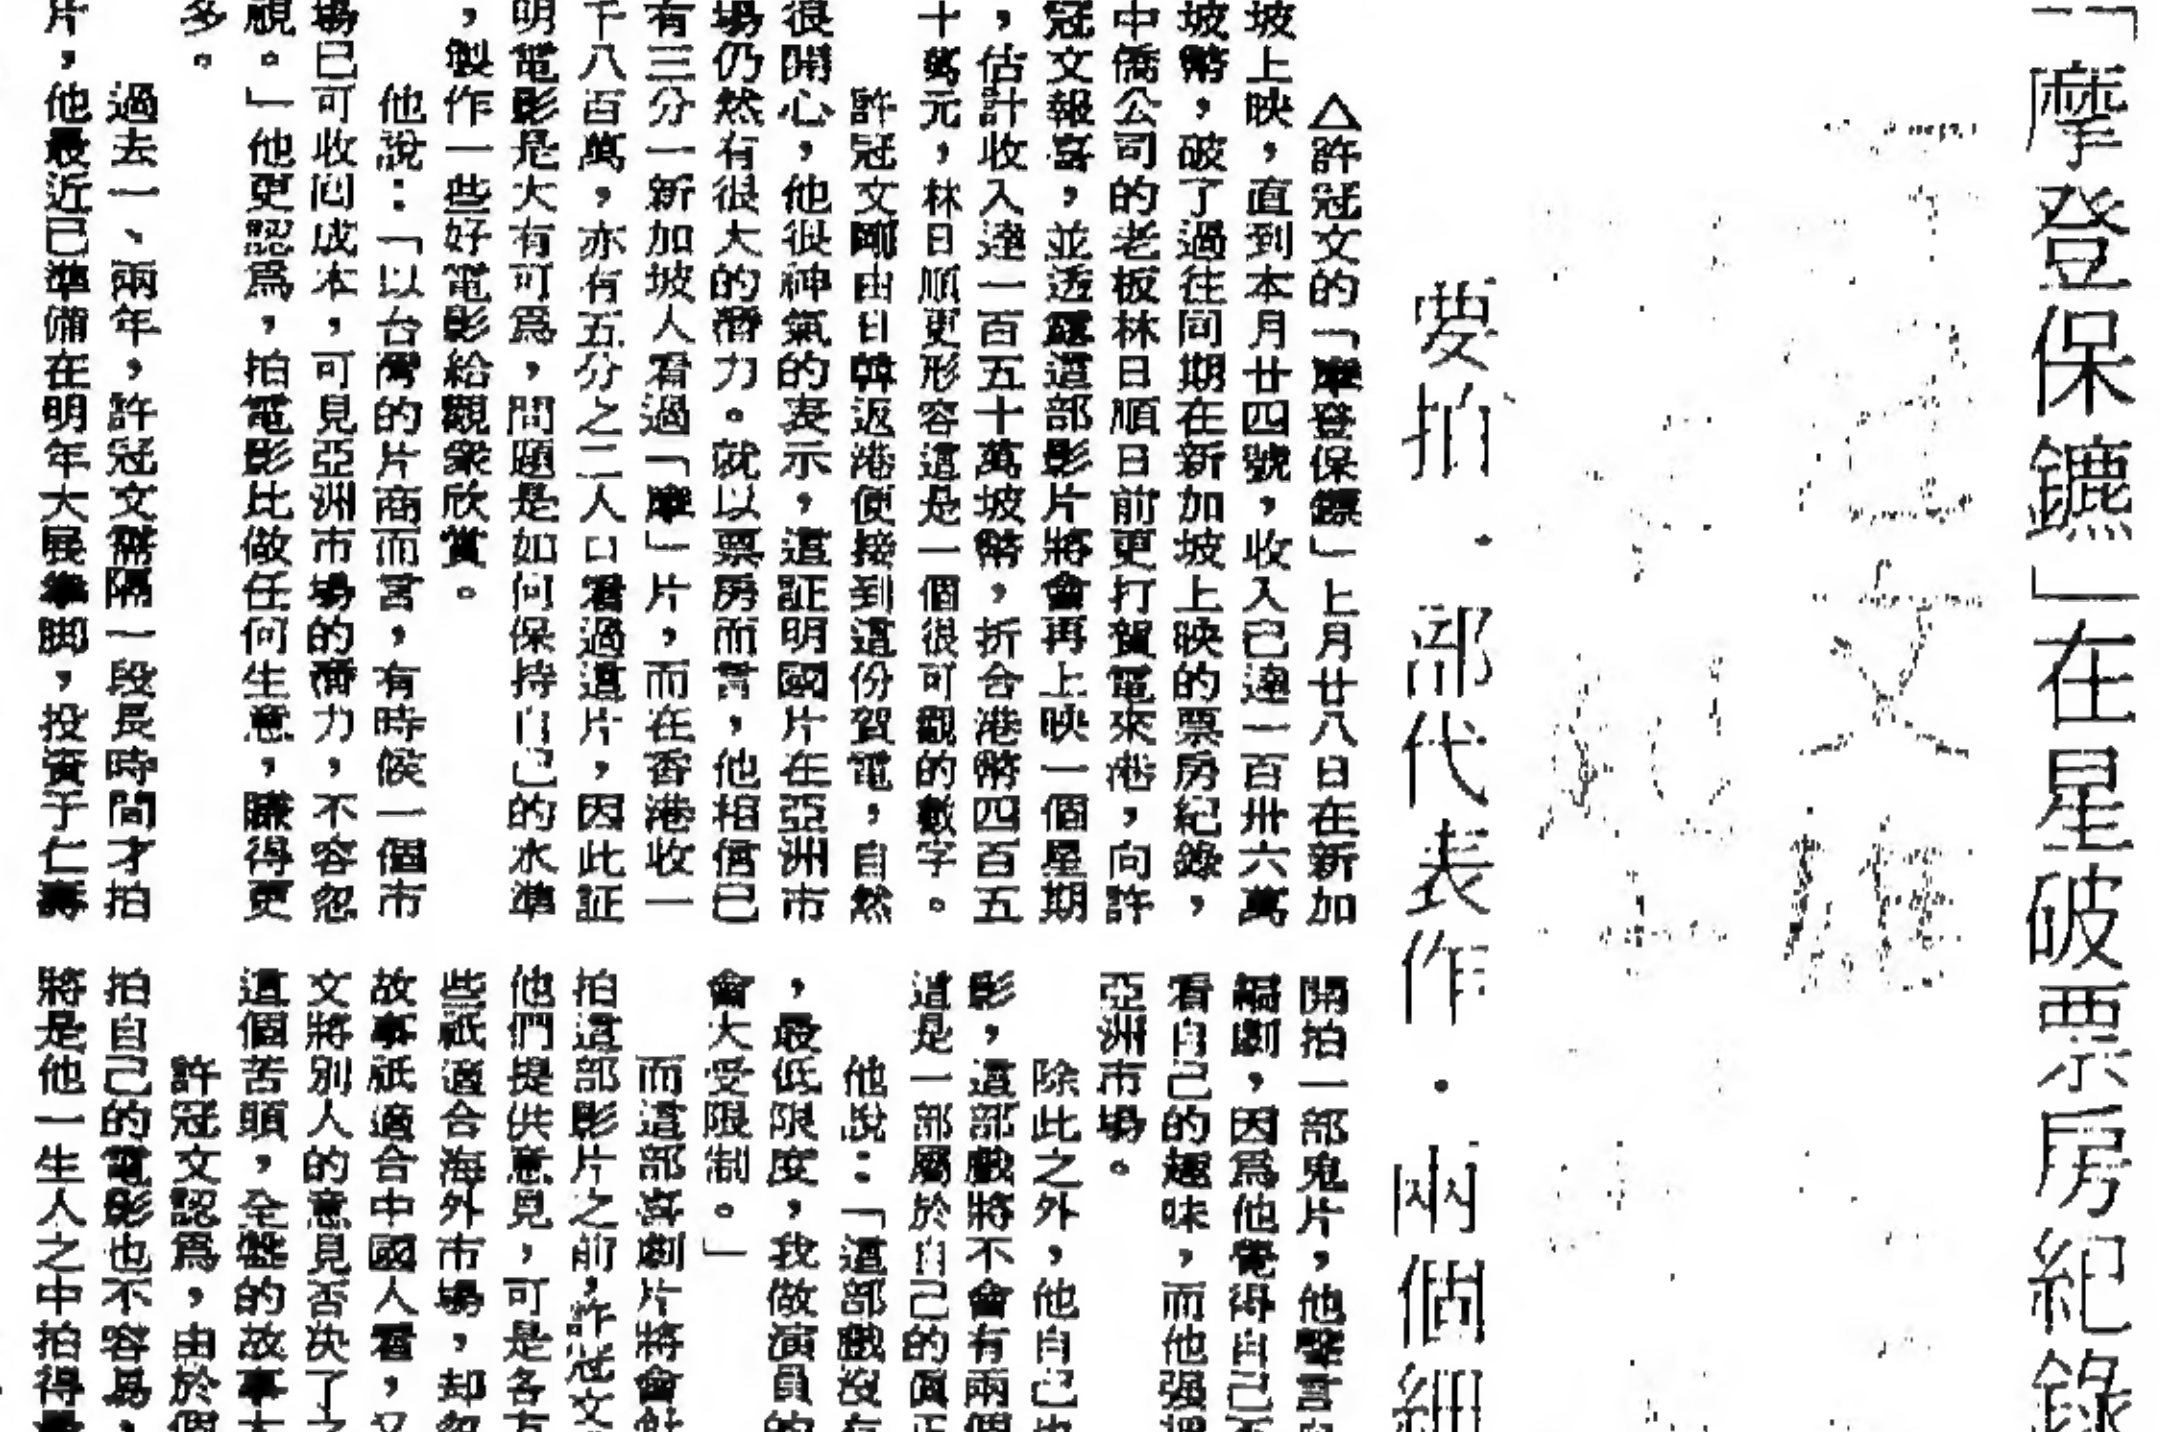 「摩登保鑣」在星破票房紀錄
要拍・部代表作・兩個細
△許冠文的「摩登保鏢」上月廿八日在新加
坡上映，直到本月廿四號，收入已達一百卅六萬
坡幣，破了過往同期在新加坡上映的票房紀錄，
中僑公司的老板林日順日前更打賀電來港，向許
冠文報喜，並透露這部影片將會再上映一個星期
，估計收入達一百五十萬坡幣，折合港幣四百五
十萬元，林日順更形容這是一個很可觀的數字。
許冠文剛由日韓返港便接到這份賀電，自然
很開心，他很神氣的表示，這証明國片在亞洲市
場仍然有很大的潛力。就以票房而言，他相信已
有三分一新加坡人看過「摩」片，而在香港收一
千八百萬，亦有五分之二人口看過這片，因此証
明電影是大有可爲，問題是如何保持自己的水準
，製作一些好電影給觀衆欣賞。
他說：「以台灣的片商而言，有時候一個市
場已可收回成本，可見亞洲市場的潛力，不容忽
視。」他更認爲，拍電影比做任何生意，賺得更
多。
過去一、兩年，許冠文需隔一段長時間才拍
片，他最近已準備在明年大展拳脚，投資于仁壽
開拍一部鬼片，他聲言
編劇，因爲他覺得自己不
看自己的趣味，而他强調
亞洲市場。
除此之外，他自己也
影，這部戲將不會有兩個
這是一部屬於自己的真正
他說：「這部戲沒有
，最低限度，我做演員的
會大受限制。」
而這部喜劇片將會計
拍這部影片之前，許冠文
他們提供意見，可是各方
些祇適合海外市場，却忽
故事祇適合中國人看，又
文將別人的意見否決了之
這個苦頭，全盤的故事大
許冠文認爲，由於個
拍自己的電影也不容易，
將是他一生人之中拍得最